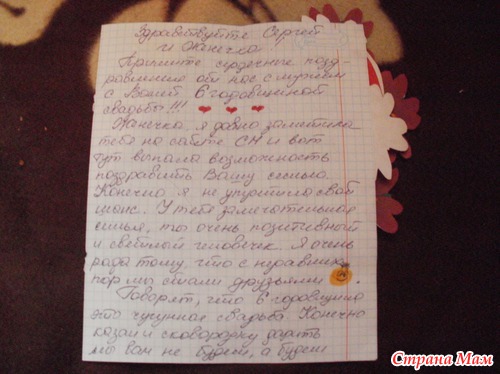 Здравствуйте Сергей
и Жанечка
Примите сердечные позд-
равления от нас с мужем
с Вашей 6 годовщиной
свадьбы!!!
Жанечка я давно заметила
тебя на сайте СМ и вот
тут выпала возможность
поздравить Вашу семью.
Конечно я не упустила свой
шанс. У тебя замечательная
семья, ты очень позитивный
и светлый человечек. Я очень
рада тому, что с недавних
пор мы стали друзьями.
Говорят, что 6 годовщина
это чугунная свадьба Конечно
казан и сковородку дарить
мы вам не будем, а будем
Страна Мам